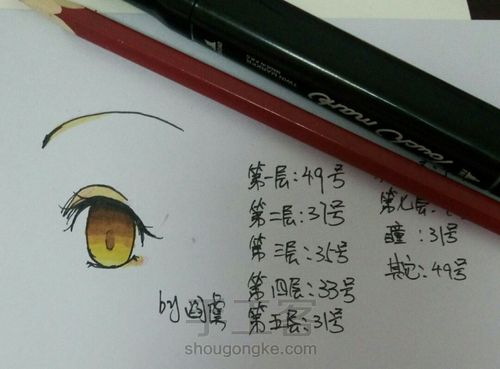 Touch mark
第一层:49号
第二层:37号
第三层:35号
第四层:33号
第五层:31号
第七层:
瞳:31号
其它:49号
by
手工客
shougongke.com